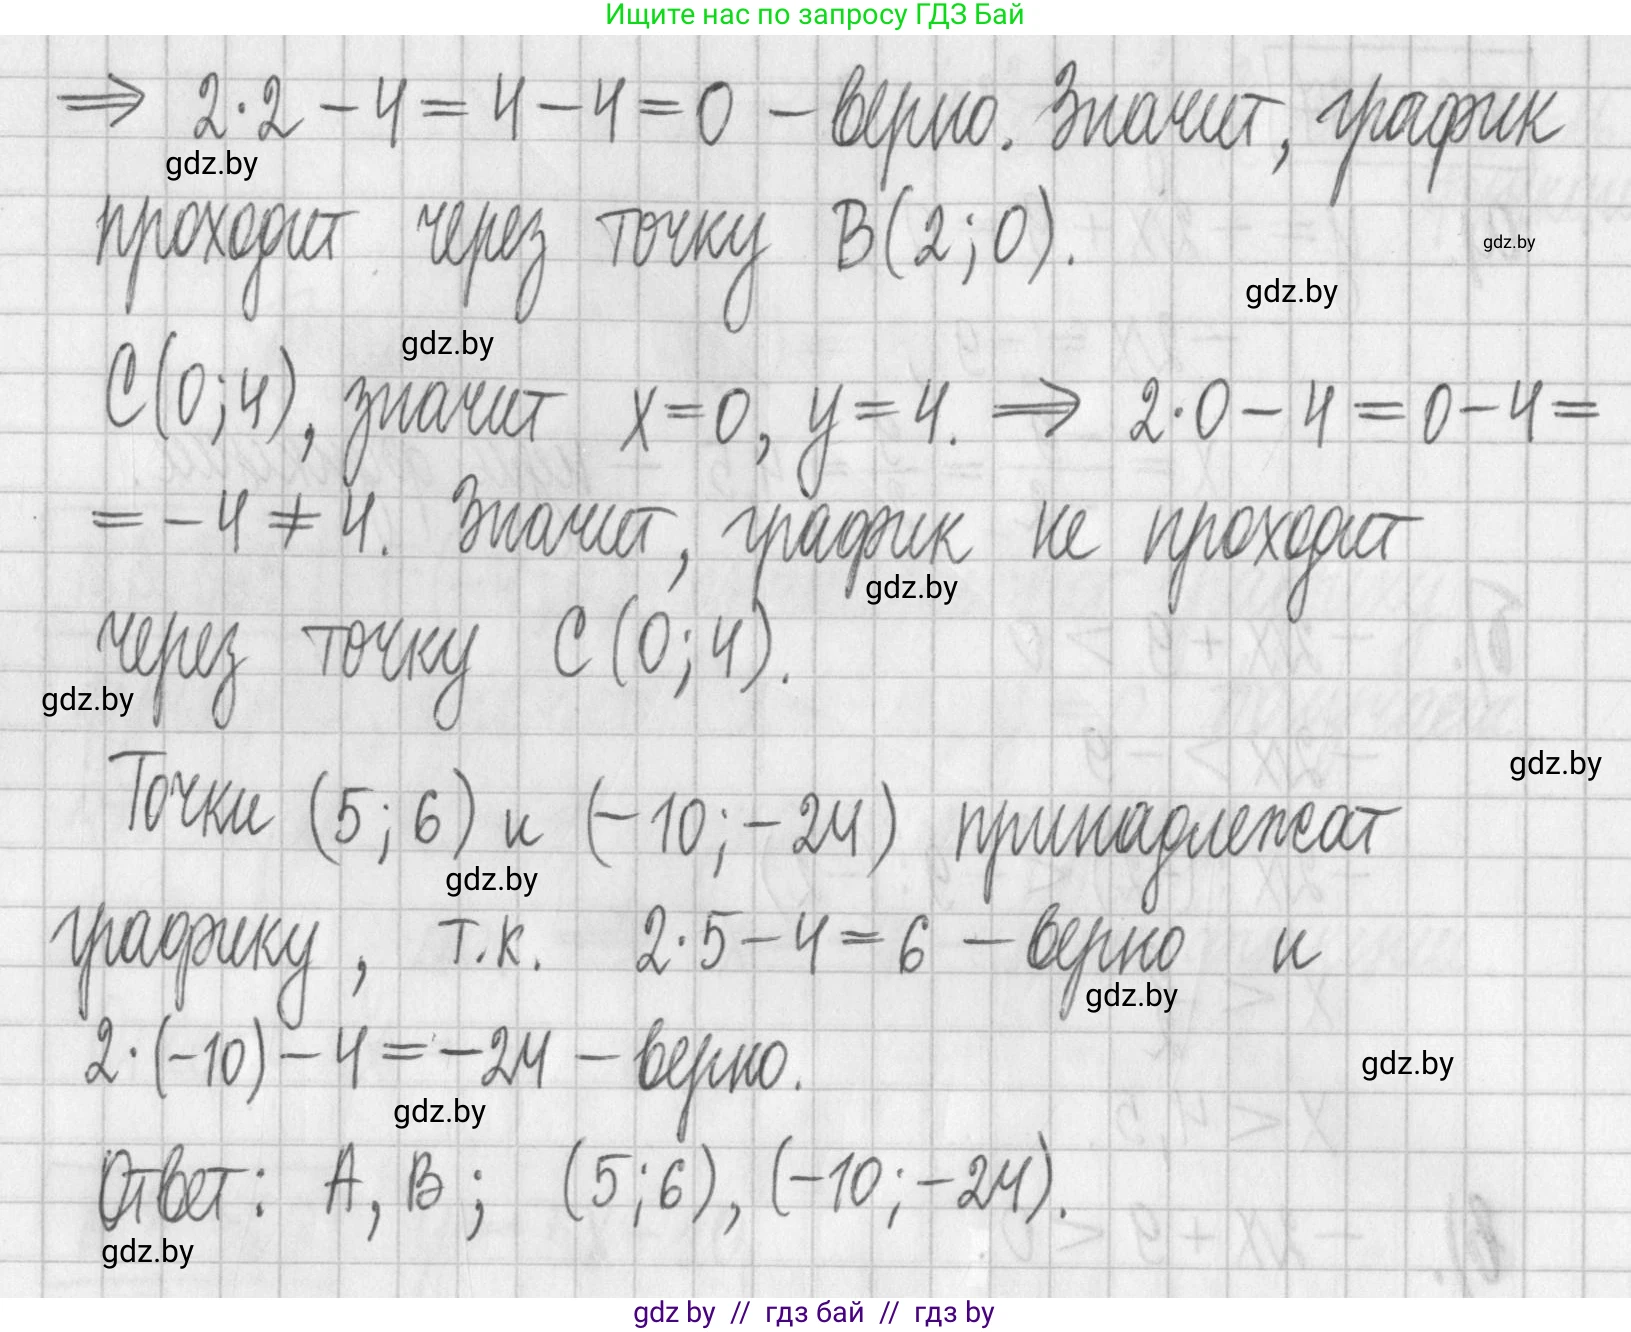 Ищите нас по запросу ГДЗ Бай
⇒ 2·2 - 4 = 4 - 4 = 0 - верно. Значит, график
gdz.by
проходит через точку B(2;0).
gdz.by
gdz.by
gdz.by
C(0;4), значит x=0, y=4. ⇒ 2·0 - 4 = 0 - 4 =
= -4 ≠ 4. Значит, график не проходит
gdz.by
через точку C(0;4).
gdz.by
gdz.by
Точки (5;6) и (-10;-24) принадлежат
gdz.by
графику, т.к. 2·5 - 4 = 6 - верно и
gdz.by
2·(-10) - 4 = -24 - верно.
gdz.by
gdz.by
Ответ: A, B; (5;6), (-10;-24).
gdz.by
gdz by // гдз бай // гдз by